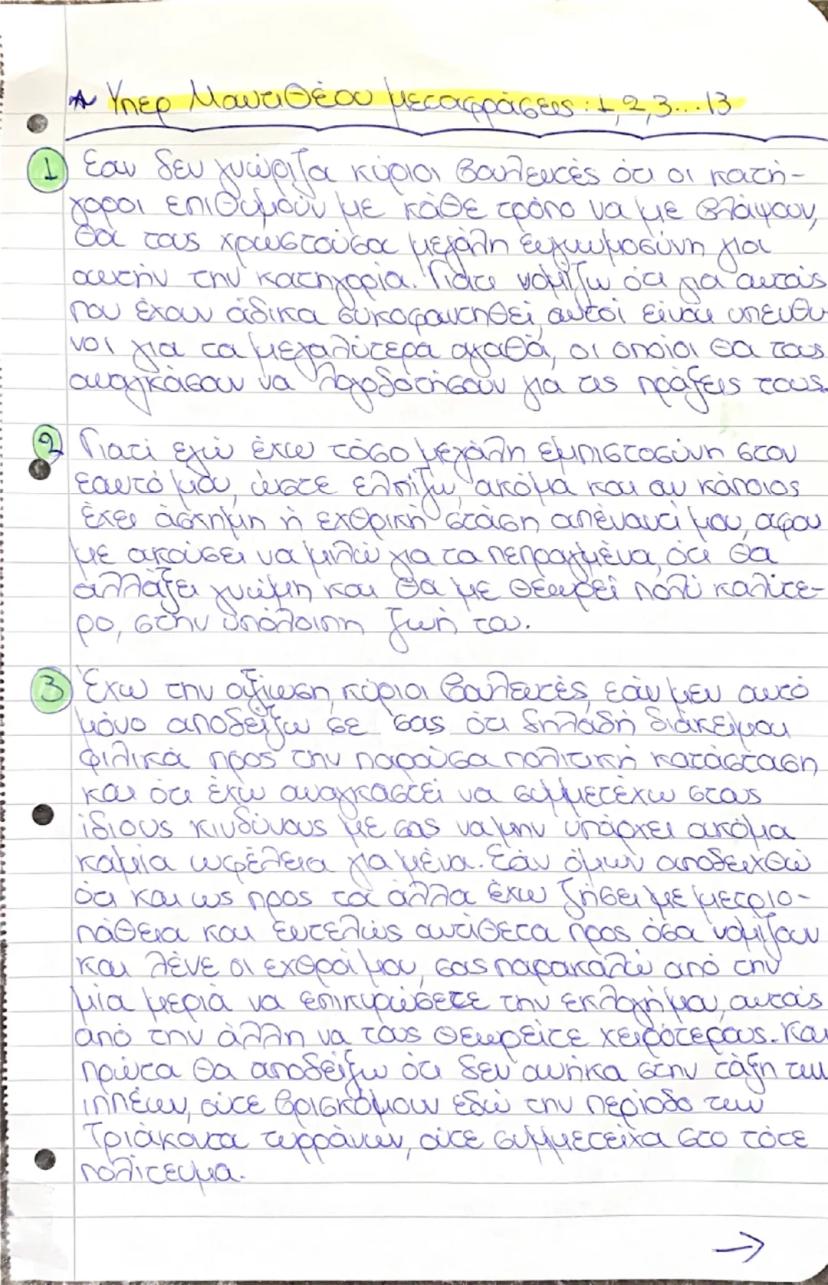 Υπερ Μαντιθέου μεταφράσεις: 1, 2, 3...13
1 Εαν δεν γνώριζα κύριοι βουλευτές ότι οι κατή-
γοροι επιθυμούν με κάθε τρόπο να με βλάψουν,
θα τους χρωστούσα μεγάλη ευγνωμοσύνη για
αυτήν την κατηγορία. Γιατι νομίζω ότι για αυτούς
που έχουν άδικα συκοφαντηθεί, αυτοί είναι υπευθυ-
νοι για τα μεγαλύτερα αγαθά, οι οποίοι θα τους
αναγκάσουν να λογοδοτήσουν για τις πράξεις τους.
2 Γιατί εγώ έχω τόσο μεγάλη εμπιστοσύνη στον
εαυτό μου, ώστε ελπίζω, ακόμα και αν κάποιος
έχει άσχημη ή εχθρική στάση απέναντί μου, αφου
με ακούσει να μιλώ για τα πεπραγμένα, ότι θα
αλλάξει γνώμη και θα με θεωρεί πολύ καλίτε-
ρο, στην υπόλοιπη ζωή του.
3 Έχω την αξίωση, κύριοι βουλευτές, εάν μεν αυτό
μόνο αποδείξω σε σας ότι δηλαδή διάκειμαι
φιλικά προς την παρούσα πολιτική κατάσταση
και ότι έχω αναγκαστεί να συμμετέχω στους
ίδιους κινδύνους με σας να μην υπάρχει ακόμα
καμία ωφέλεια για μένα. Εάν όμων αποδειχθώ
ότι και ως προς τα άλλα έχω ζήσει με μετριο-
πάθεια και εντελώς αντίθετα προς όσα νομίζουν
και λένε οι εχθροί μου, σας παρακαλώ από την
μία μεριά να επικυρώσετε την εκλογή μου, αυτούς
από την άλλη να τους θεωρείτε χειρότερους. Και
πρώτα θα αποδείξω ότι δεν ανήκα στην τάξη των
ιππέων, ούτε βρισκόμουν εδώ την περίοδο των
Τριάκοντα τυρράνων, ούτε συμμετείχα στο τότε
πολίτευμα.
→